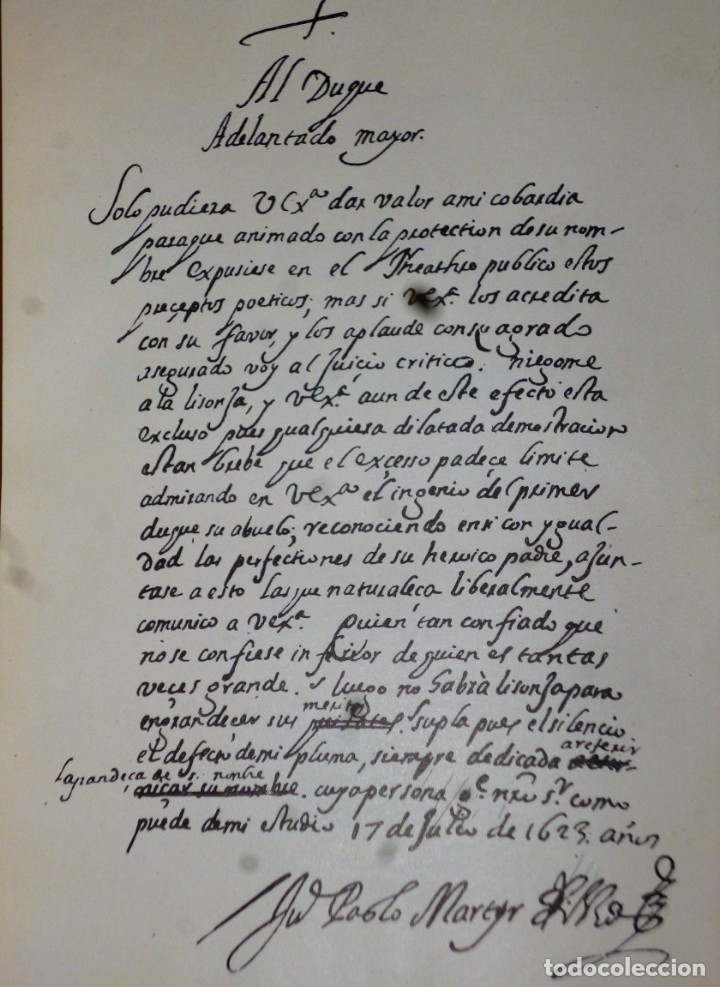 Al Duque
Adelantado mayor.
Solo pudiera VExª dar valor ami cobardia
paraque animado con la protection de su nom-
bre expusiese en el Theathro publico estos
preceptos poeticos; mas si VExª. los acredita
con su favor, y los aplaude con su agrado
asegurado voy al Juicio critico. niegome
a la lisonja, y VExª. aun de este efecto esta
excluso pues qualquiera dilatada demostracion
estan brebe que el excesso padeçe limite
admirando en VExª el ingenio del primer
duque su abuelo; reconociendo en si con ygual-
dad las perfectiones de su heroico padre, ajun-
tase a esto las que naturaleça liberalmente
comunico a VExª. quien tan confiado que
no se confiese inferior de quien es tantas
veces grande. luego no habrà lisonja para
meritos
engrandecer sus supla pues el silencio
el defecto de mi pluma, siempre dedicada
a referir
la grandeça de su nombre
nicar su nombre. cuya persona gᵉ. nro sʳ. como
puede de mi estudio 17 de Julio de 1623. años
Juº Pablo Martyr Rizo
todocoleccion
todocoleccion.net